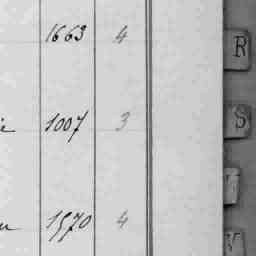 1663 4
R
1007 3
S
1570 4
V